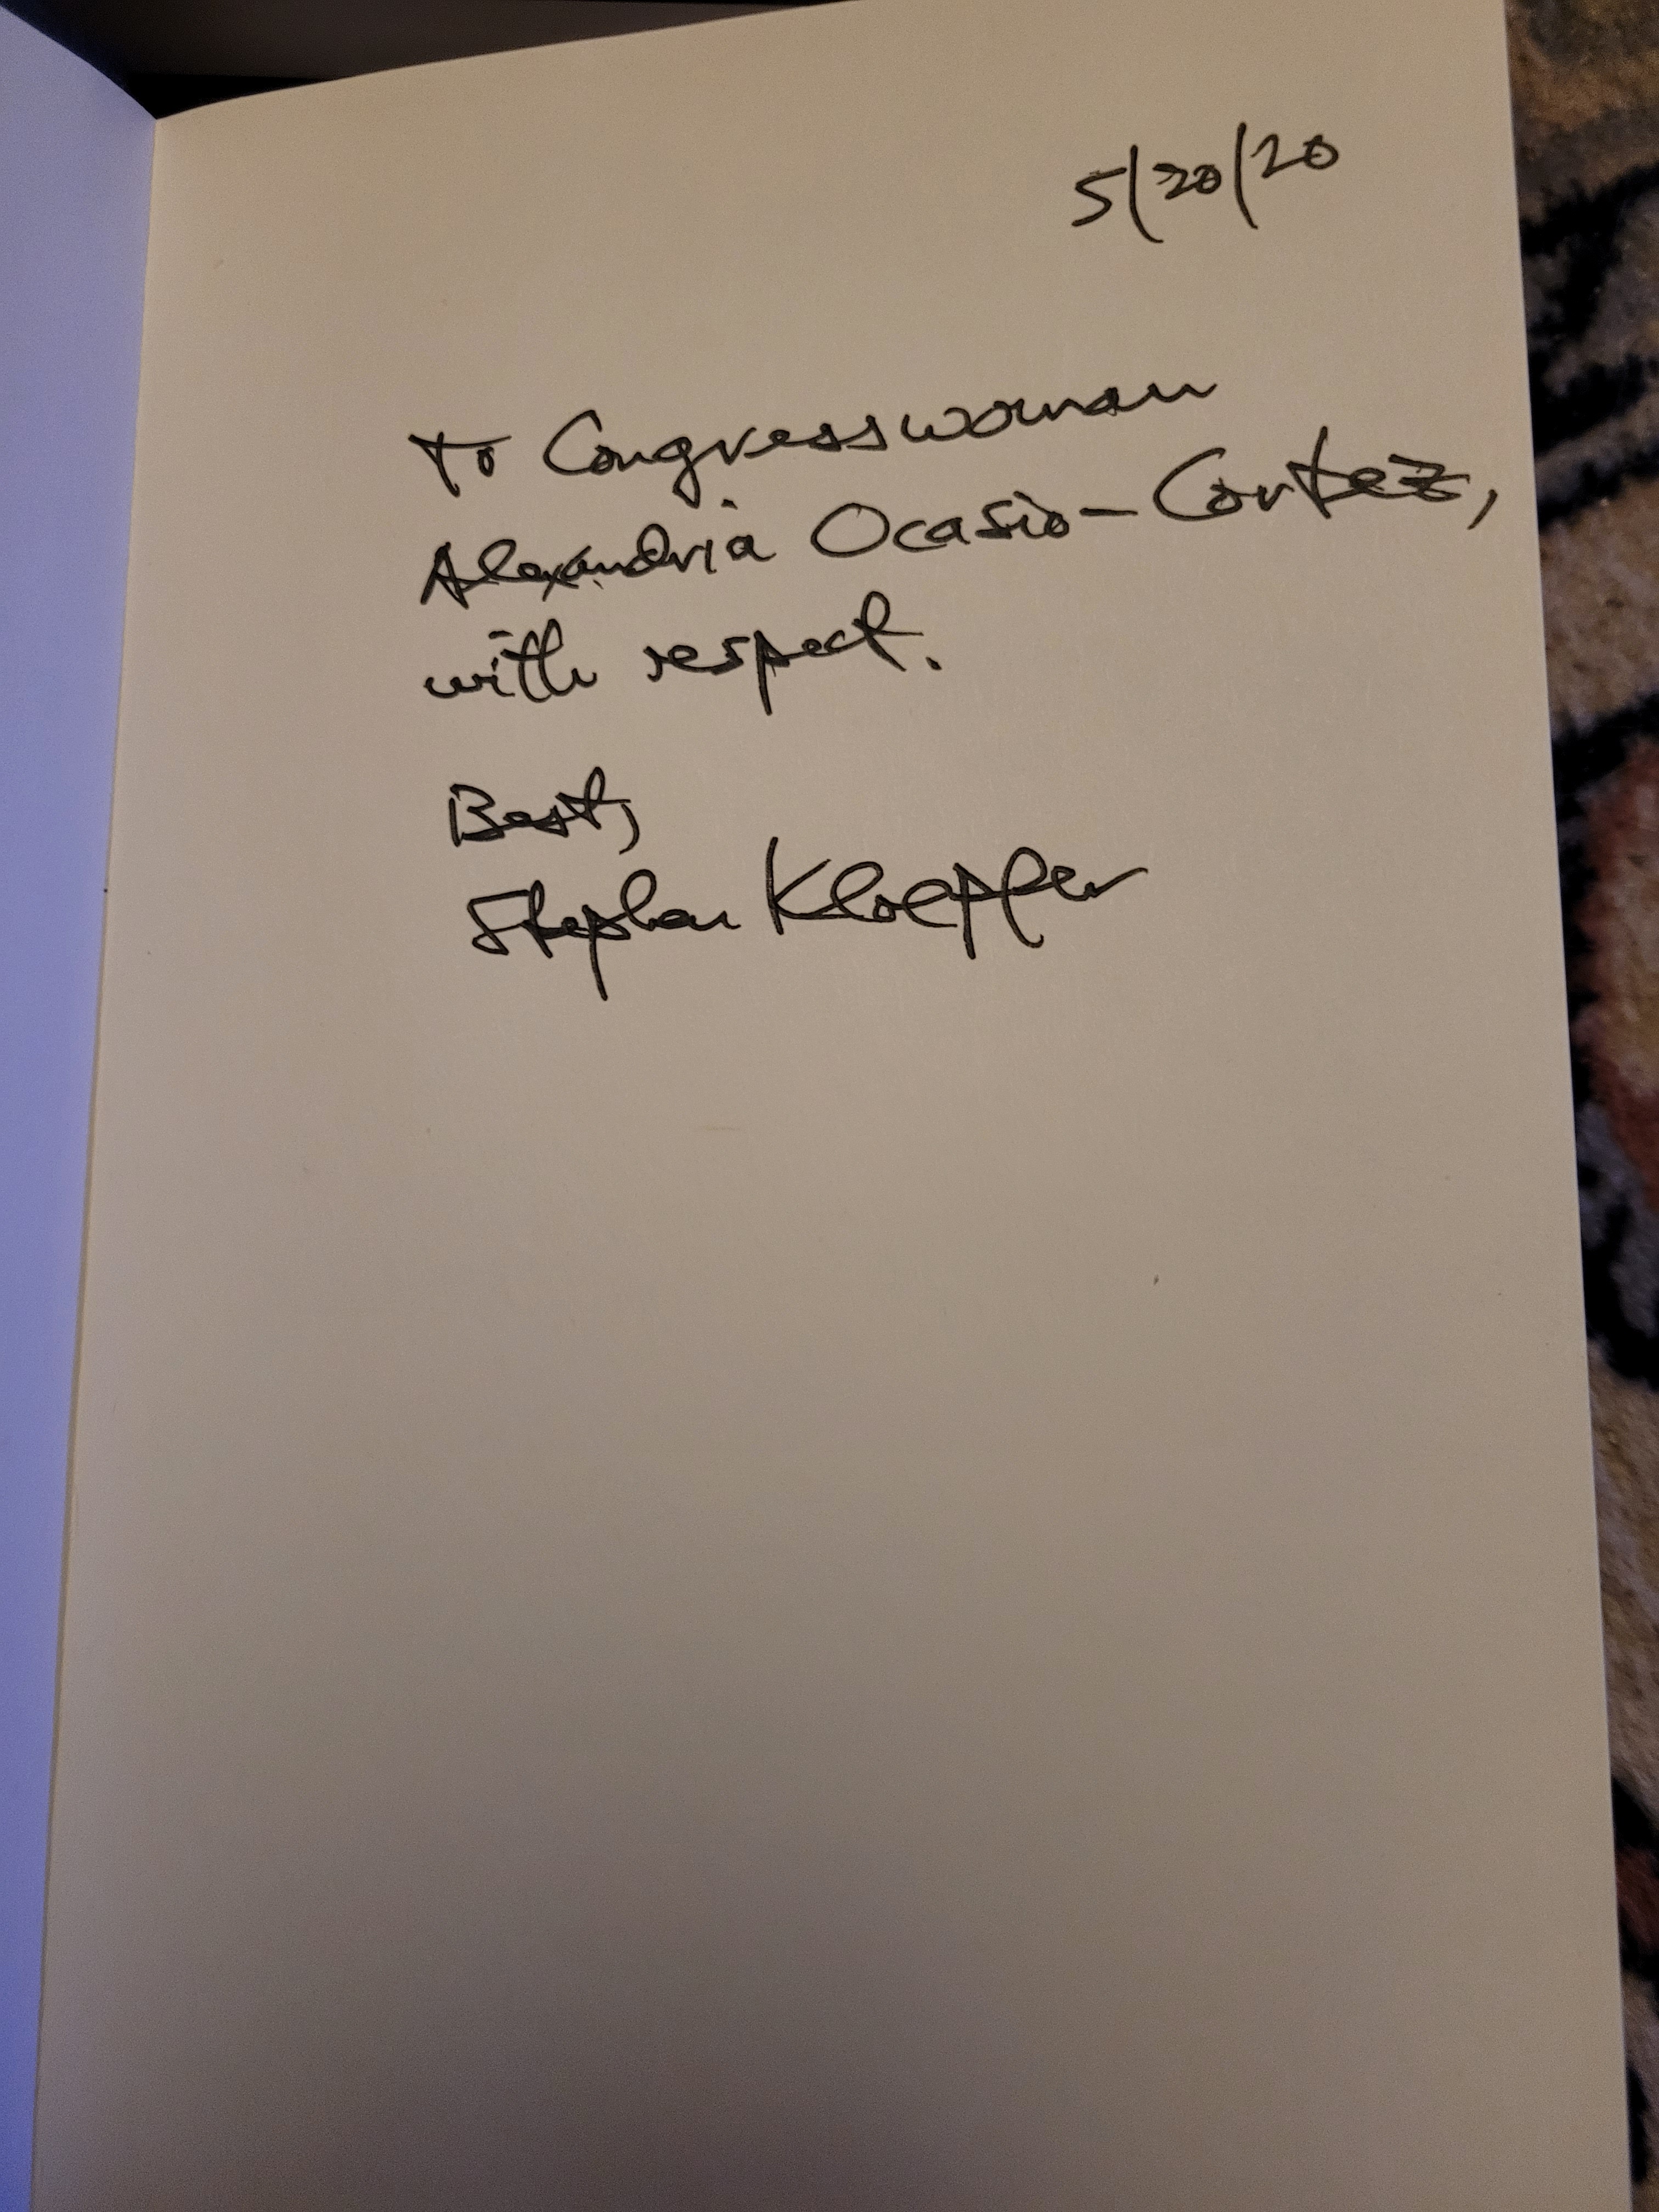 5/20/20
To Congresswoman
Alexandria Ocasio-Cortez,
with respect.
Best,
Stephen Kloepfer